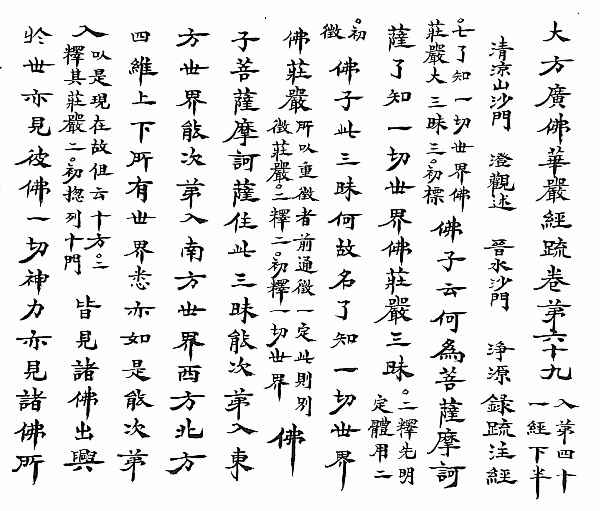 大方廣佛華嚴經䟽卷第六十九 入第四十一經下半
清凉山沙門 澄觀述 晉水沙門 淨源 錄䟽注經
。七了知一切世界佛莊嚴大三昧三。初標 佛子云何為菩薩摩訶
薩了知一切世界佛莊嚴三昧 。二釋先明定體用二
。初徵 佛子此三昧何故名了知一切世界
佛莊嚴 所以重徵者前通徵一定此則別徵莊嚴。二釋二。初釋一切世界 佛
子菩薩摩訶薩住此三昧能次第入東
方世界能次第入南方世界西方北方
四維上下所有世界悉亦如是能次第
入 以是現在故但云十方。二釋其莊嚴二。初揔列十門 皆見諸佛出興
於世亦見彼佛一切神力亦見諸佛所